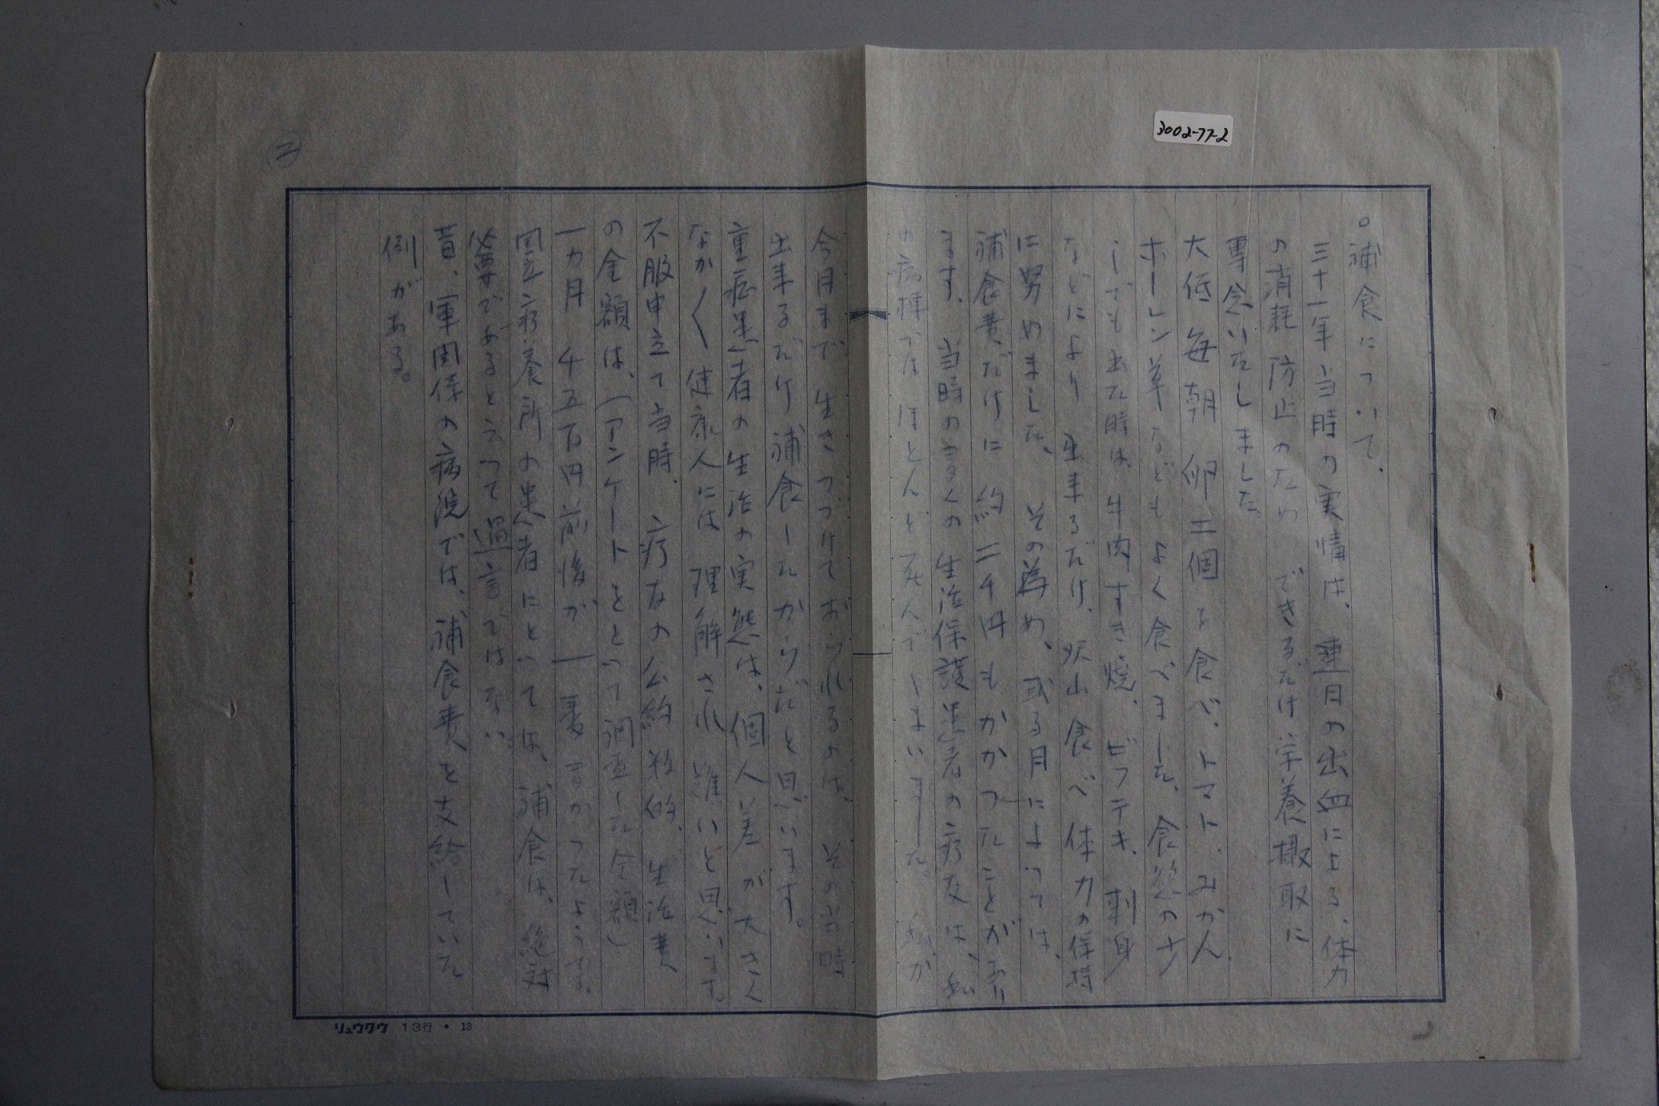 3002-77-2
(二)
○補食について、
三十一年当時の実情は、連日の出血による、体力
の消耗防止のため できるだけ栄養摂取に
専念いたしました
大低毎朝 卵二個を食べ、トマト、みかん、
ホーレン草などもよく食べました、食慾の少
しでも出た時は、牛肉すき焼、ビフテキ、刺身
などにより 出来るだけ、沢山食べ体力の保持
に努めました、 その為め、或る月によっては、
補食費だけに 約二千円もかかつたことがあり
ます、 当時の多くの生活保護患者の療友は、私
の病棟ではほとんど死んでしまいました、
今日まで生きつづけておられるのは、その当時
出来るだけ補食したからだと思います。
重症患者の生活の実態は、個人差が大きく
なか〱健康人には理解され難いと思います。
不服申立て当時、療友の公約数的、生活費
の金額は、(アンケートをとって調査した金額)
一カ月 千五百円前後が一番多かつたようです。
国立療養所の患者にとっては、補食は、絶対
必要であると云つて過言ではない
昔、軍関係の病院では、補食費を支給していた
例がある。
リュウクウ 13行・13